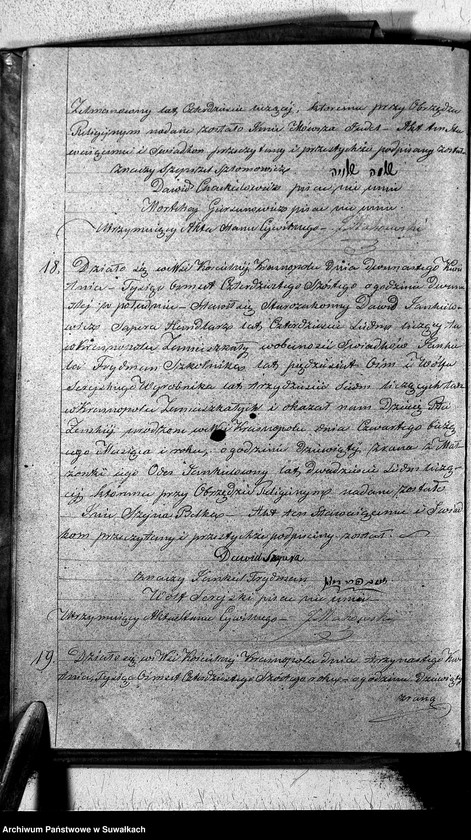 lat Czterdzieści liczącej, któremu przy Obrzędzie
Religijnym nadane zostało Imię Mowsza Judel – Akt ten Sta-
wającemu i Świadkom przeczytany i przez tychże podpisany został
znaczy Szymszel Szlomowicz
Dawid Chackielowicz pisać nie umie
Mortchej Gierszonowicz pisać nie umie.
Utrzymujący Akta Stanu Cywilnego –
18. Działo się w Wsi Kościelnej Krasnopolu Dnia dwunastego Kwie-
tnia – Tysiąc Ośmset Czterdziestego Szóstego o godzinie Dwuna-
stej po południu – Stawił się Starozakonny Dawid Jankielo-
wicz Sapira Handlarz lat Czterdzieści Siedm liczący tu
w Krasnopolu Zamieszkały, w obecności Świadków Janki-
la Frydman Szkolnika lat pięćdziesiąt Ośm i Wolfa
Serejskiego Wyrobnika lat trzydzieści Siedm liczących tu
w Krasnopolu Zamieszkałych i okazał nam Dziecię Płci
Żeńskiej urodzone w Wsi Krasnopolu dnia Czwartego bieżą-
cego Miesiąca i roku, o godzinie Dziewiątej z rana z Mał-
żonki jego Jankielowny lat dwadzieścia Siedm liczą-
cej któremu przy Obrzędzie Religijnym nadane zostało
Imię Szejna Belka – Akt ten Stawającemu i Świad-
kom przeczytany i przez tychże podpisany został.
Dawid Sapira
znaczy Jankiel Frydman
Wolf Serejski pisać nie umie
Utrzymujący Akta Stanu Cywilnego –
19. Działo się w Wsi Kościelnej Krasnopolu dnia trzynastego Kwie-
tnia, Tysiąc Ośmset Czterdziestego Szóstego roku – o godzinie Dziewiątej
z rana
Archiwum Państwowe w Suwałkach